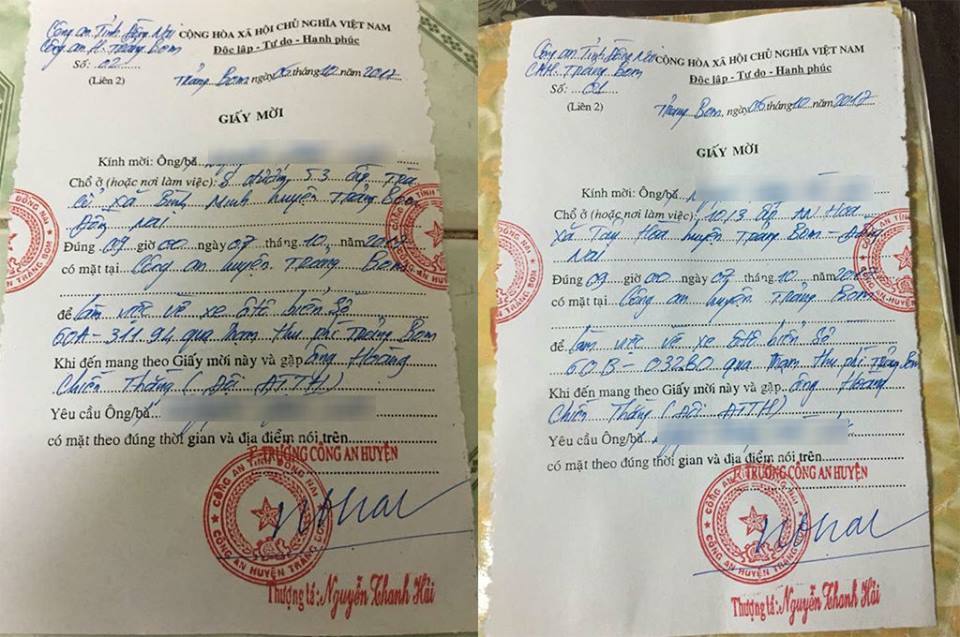 Công an Tỉnh Đồng Nai
CỘNG HÒA XÃ HỘI CHỦ NGHĨA VIỆT NAM
Công an H. Trảng Bom
Độc lập - Tự do - Hạnh phúc
Số: 02
(Liên 2)
Trảng Bom, ngày 05 tháng 10 năm 2017
GIẤY MỜI
Kính mời: Ông/bà
Chỗ ở (hoặc nơi làm việc): 53 ấp Trà
Cổ xã Bình Minh huyện Trảng Bom
Đồng Nai
Đúng 09 giờ 00 ngày 07 tháng 10 năm 2017
có mặt tại Công an huyện Trảng Bom
để làm việc về xe ôtô biển số
60A - 311.94 qua trạm thu phí Trảng Bom
Khi đến mang theo Giấy mời này và gặp ông Hoàng
Chiến Thắng (Đội ATTH)
Yêu cầu Ông/bà
có mặt theo đúng thời gian và địa điểm nói trên
TRƯỞNG CÔNG AN HUYỆN
CÔNG AN TỈNH ĐỒNG NAI
CÔNG AN HUYỆN TRẢNG BOM
Thượng tá: Nguyễn Thanh Hải
Công an Tỉnh Đồng Nai
CỘNG HÒA XÃ HỘI CHỦ NGHĨA VIỆT NAM
CAH. Trảng Bom
Độc lập - Tự do - Hạnh phúc
Số: 01
(Liên 2)
Trảng Bom, ngày 05 tháng 10 năm 2017
GIẤY MỜI
Kính mời: Ông/bà
Chỗ ở (hoặc nơi làm việc): 10/3 ấp An Hòa
xã Tây Hòa huyện Trảng Bom - Đồng
Nai
Đúng 09 giờ 00 ngày 07 tháng 10 năm 2017
có mặt tại Công an huyện Trảng Bom
để làm việc về xe ôtô biển số
60B - 03280 qua trạm thu phí Trảng Bom
Khi đến mang theo Giấy mời này và gặp ông Hoàng
Chiến Thắng (Đội ATTH)
Yêu cầu Ông/bà
có mặt theo đúng thời gian và địa điểm nói trên
TRƯỞNG CÔNG AN HUYỆN
CÔNG AN TỈNH ĐỒNG NAI
CÔNG AN HUYỆN TRẢNG BOM
Thượng tá: Nguyễn Thanh Hải